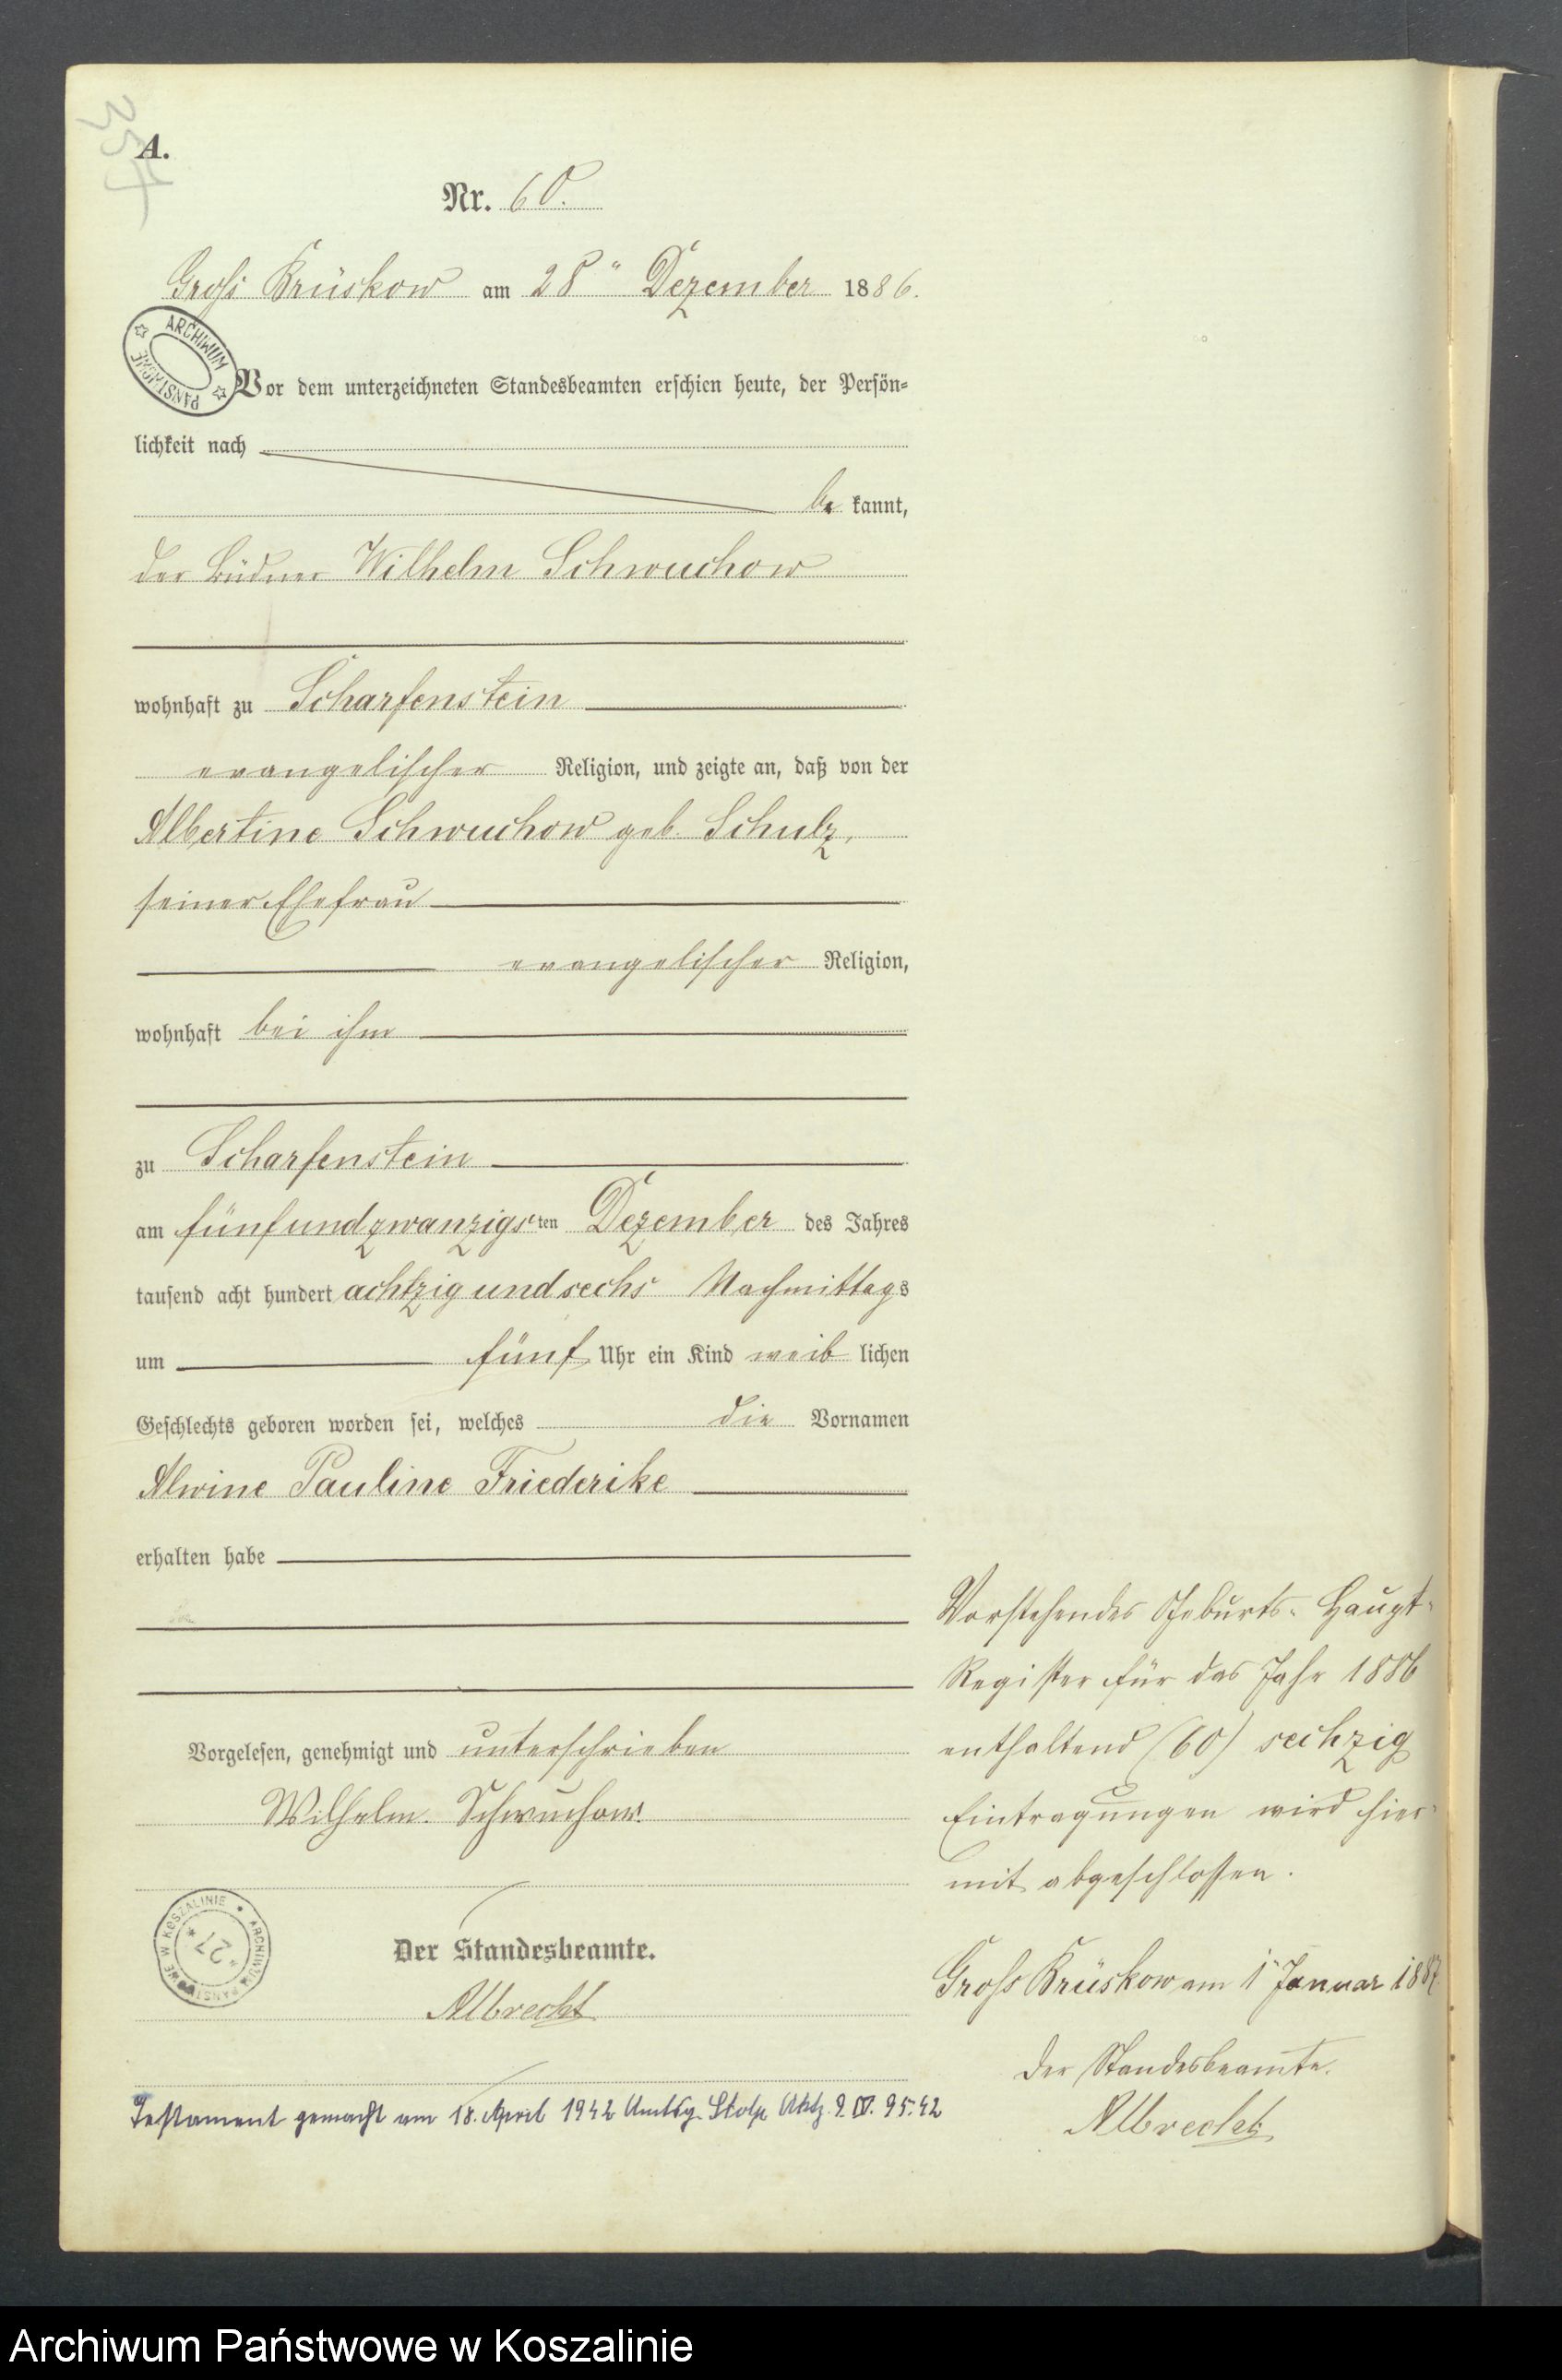 354
A.
Nr. 60.
Groß Brüskow am 28ⁿ Dezember 1886.
ARCHIWUM PAŃSTWOWE
Vor dem unterzeichneten Standesbeamten erschien heute, der Persön-
lichkeit nach
be kannt,
der Büdner Wilhelm Schwuchow
wohnhaft zu Scharfenstein
evangelischer Religion, und zeigte an, daß von der
Albertine Schwuchow geb. Schulz,
seiner Ehefrau
evangelischer Religion,
wohnhaft bei ihm
zu Scharfenstein
am fünfundzwanzigsten Dezember des Jahres
tausend acht hundert achtzig und sechs Nachmittags
um fünf Uhr ein Kind weib lichen
Geschlechts geboren worden sei, welches die Vornamen
Alwine Pauline Friederike
erhalten habe
Vorgelesen, genehmigt und unterschrieben
Wilhelm. Schwuchow.
ARCHIWUM PAŃSTWOWE W KOSZALINIE
27
Der Standesbeamte.
Albrecht
Testament gemacht am 18. April 1942 Amtsg. Stolp Aktz. 9. IV. 95.42
Vorstehendes Geburts-Haupt-
Register für das Jahr 1886
enthaltend (60) sechzig
Eintragungen wird hier-
mit abgeschlossen.
Groß Brüskow am 1ⁿ Januar 1887
Der Standesbeamte.
Albrecht
Archiwum Państwowe w Koszalinie